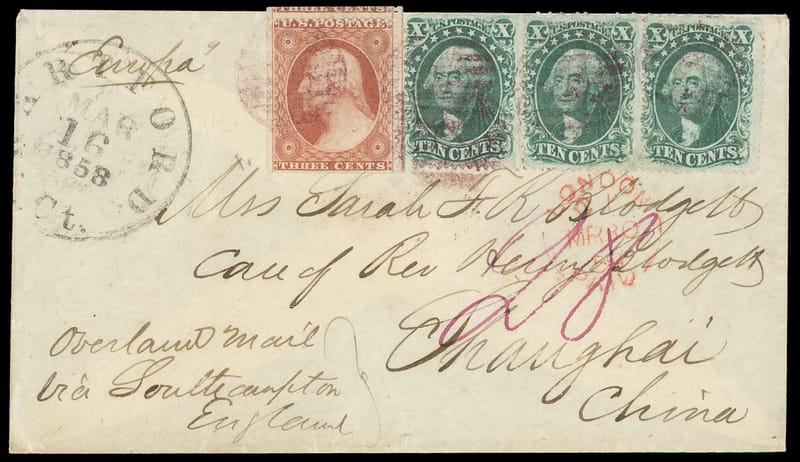 THREE CENTS
U.S. POSTAGE
THREE CENTS
X U.S. POSTAGE X
TEN CENTS
X U.S. POSTAGE X
TEN CENTS
X U.S. POSTAGE X
TEN CENTS
"Europa"
HARTFORD
MAR
16
1858
Ct.
LONDON
MR 30
PAID
Mrs Sarah F. K. Blodgett
Care of Rev Henry Blodgett
Shanghai
China
Overland Mail
via Southampton
England